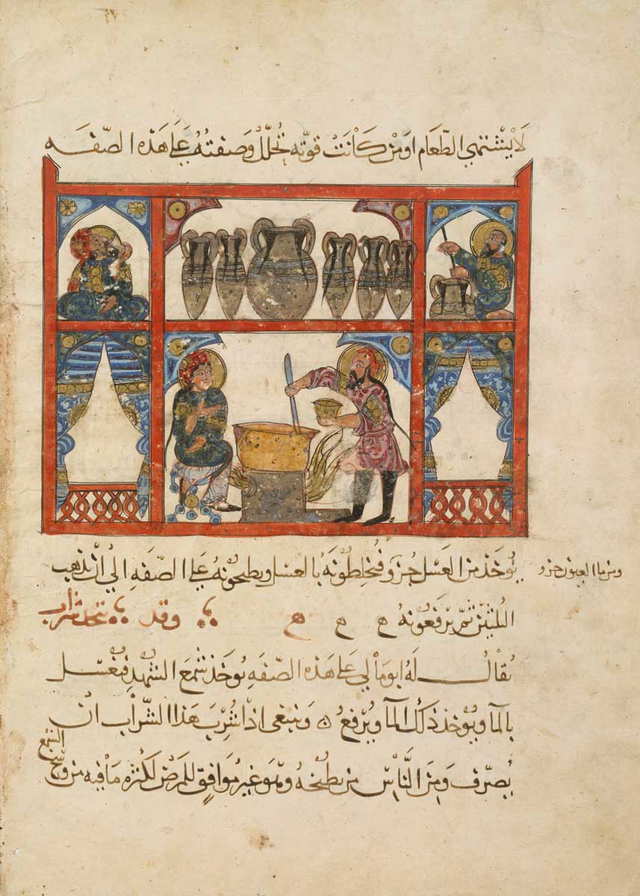 لا يشتهي الطعام اومن كانت قوته تحلل وصفته على هذه الصفه
يوخذ من العسل جزو فيخلطونه بالعسل ويطبخونه على الصفه الى ان تذهب
ومن ما العيون جزو
الثلثين ثم يرفعونه ه ه ه وقد يتخذ شراب
يقال له ابومالي على هذه الصفه يوخذ شمع الشهد فيغسل
بالما ويوخذ ذلك الما ويرفع ٥ وينبغي اذا شرب هذا الشراب ان
يصرف ومن الناس من يطبخه وهو غير موافق للمرض لكثره ما فيه من وسخ
الشمع